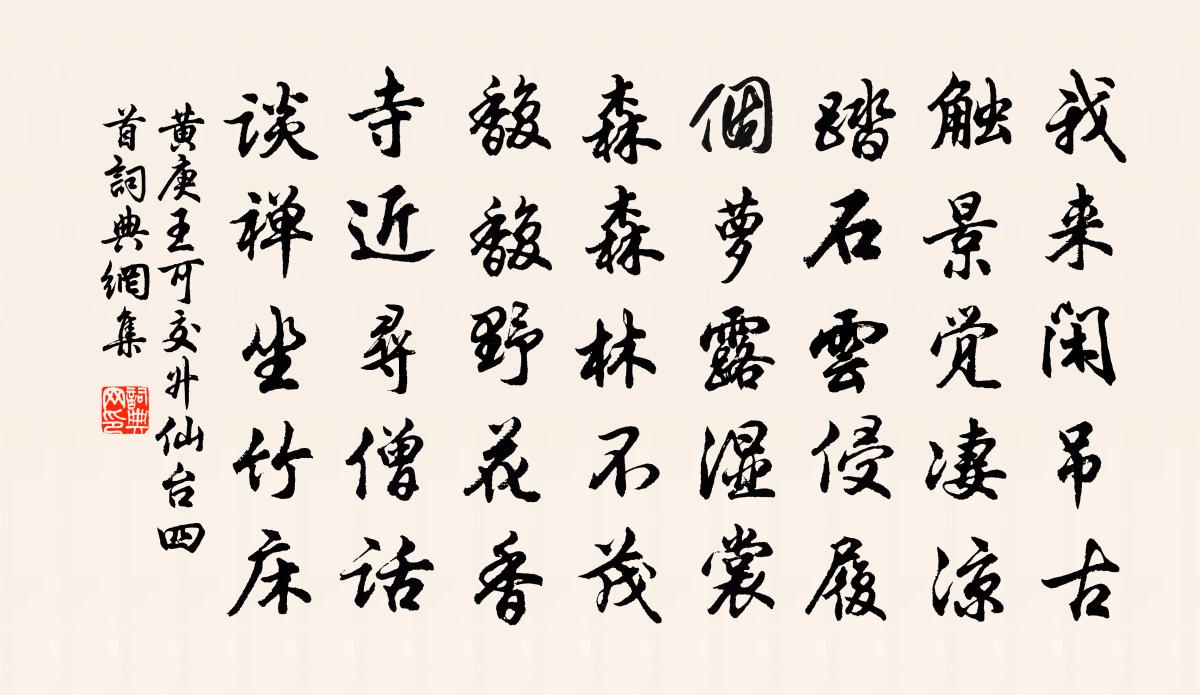 我来闲吊古
触景觉凄凉
踏石雲侵履
個萝露湿裳
森森林不茂
馥馥野花香
寺近尋僧话
谈禅坐竹床
黄庚王可交升仙台四
首詞典網集
詞典
网印